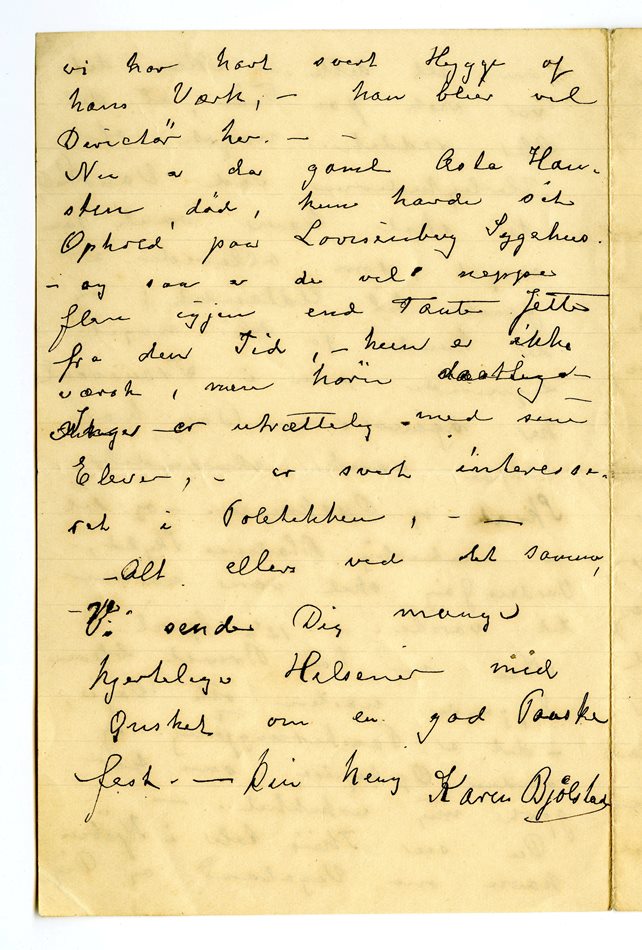 vi har havt svert Hygge af
hans Værk, – han blier vel
Direktør her. – –
Nu er da gamle Aasta Han-
sten død, hun havde sit
Ophold paa Lovisenberg Sygehus.
– og saa er de vel neppe
flere igjen end Tante Jette
fra den Tid, – hun er ikke
værst, men hører daarligere
er utrættelig med sine
Elever, – er svert interesse-
ret i Politikken, – –
– Alt ellers ved det samme,
– Vi sender Dig mange
hjertelige Hilsener med
Ønsket om en god Paaske
fest. – Din heng Karen Bjølstad